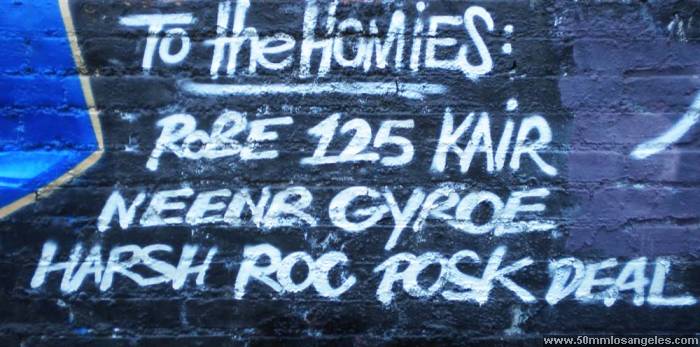 To the HOMiES:
ROBE 125 KAiR
NEENR GYROE
HARSH ROC POSK DEAL
www.50mmlosangeles.com